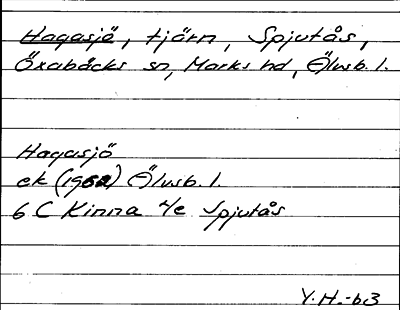 Hagasjö, tjärn, Spjutås,
Öxabäcks sn, Marks hd, Älvsb. l.
Hagasjö
ek (1962) Älvsb. l.
6 C Kinna 4/e Spjutås
Y.H.-63